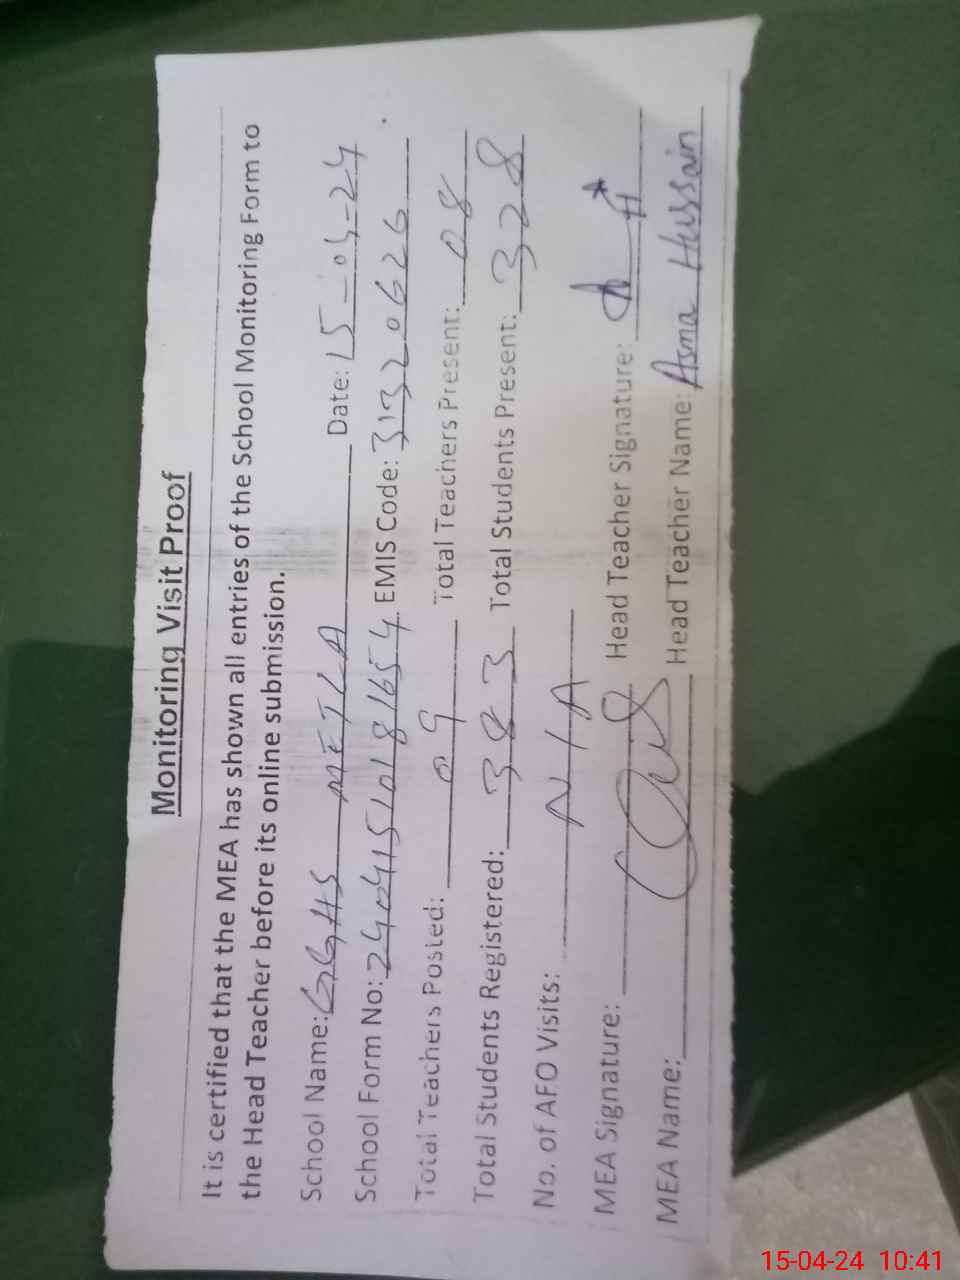 Monitoring Visit Proof
It is certified that the MEA has shown all entries of the School Monitoring Form to
the Head Teacher before its online submission.
School Name: GGHS METLA Date: 15-04-24
School Form No: 24041510181654 EMIS Code: 31320626
Total Teachers Posted: 09 Total Teachers Present: 08
Total Students Registered: 383 Total Students Present: 328
No. of AEO Visits: N/A
MEA Signature: Head Teacher Signature:
MEA Name: Head Teacher Name: Asma Hussain
15-04-24 10:41